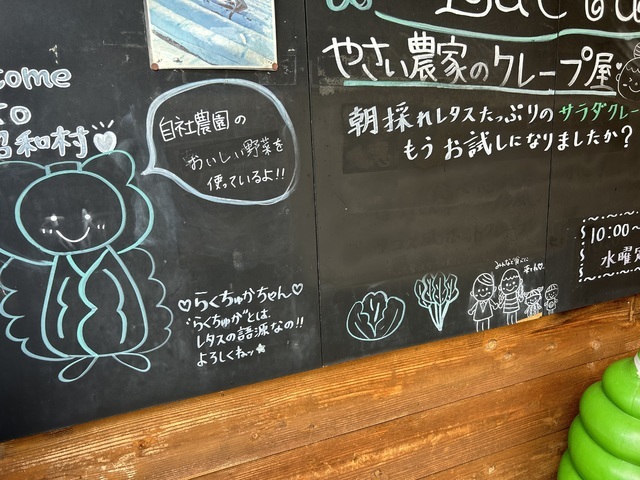 to
昭和村
自社農園の
おいしい野菜を
使っているよ!!
♡らくちゅかちゃん♡
"らくちゅか"とは、
レタスの語源なの!!
よろしくねッ★
やさい農家のクレープ屋
朝採れレタスたっぷりの サラダクレー
もうお試しになりましたか?
10:00~
水曜定